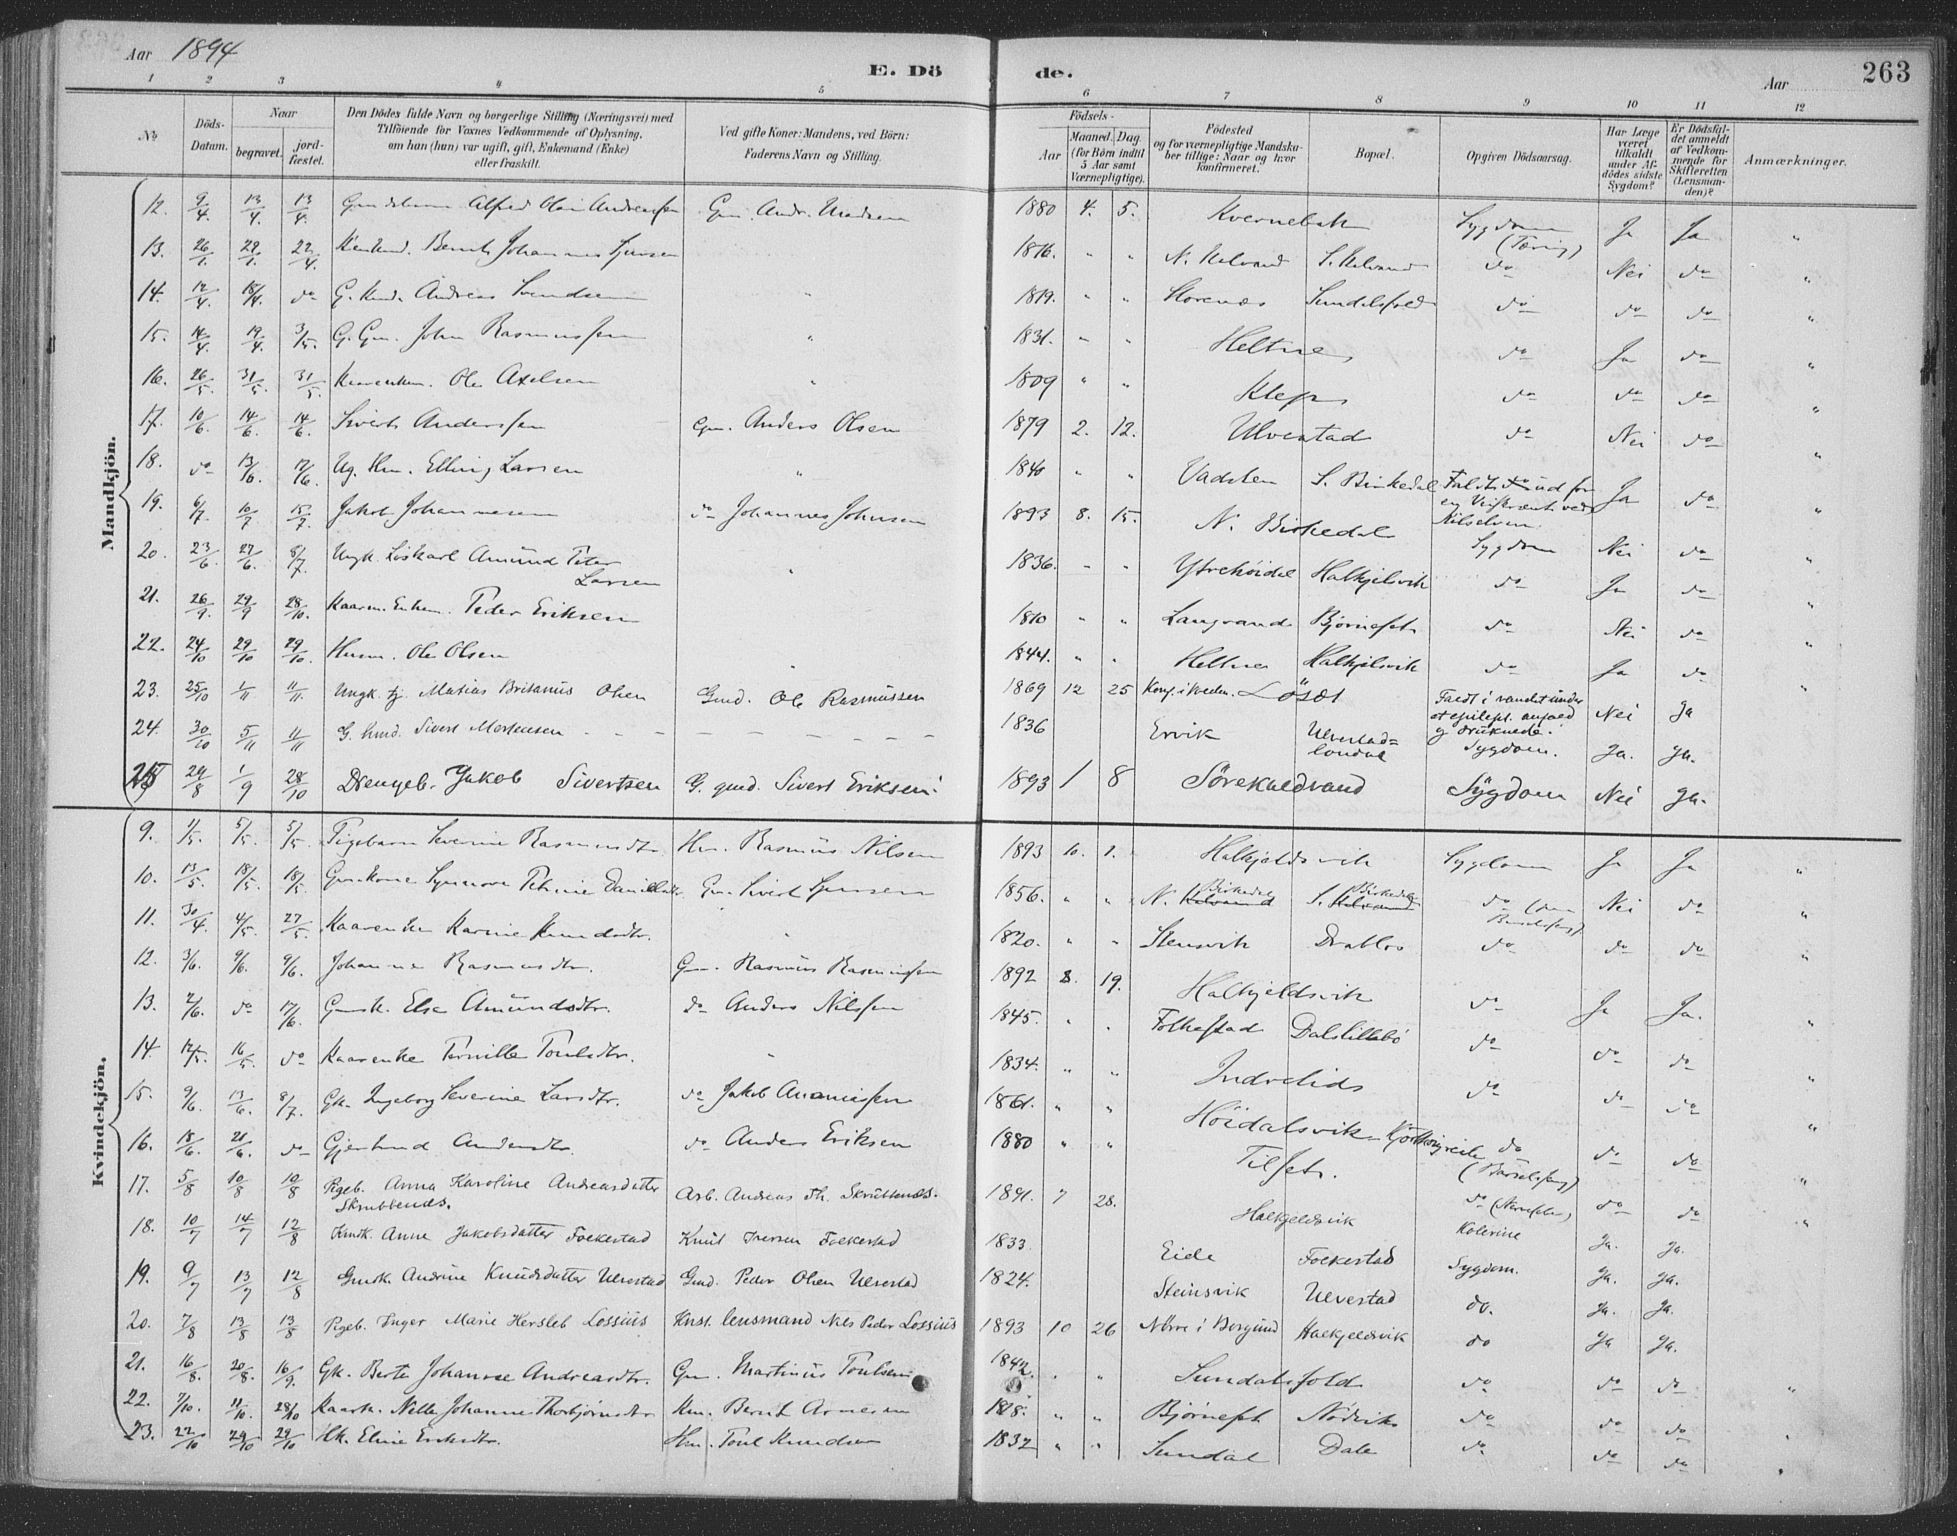 Aar 1894
E. Dö de.
Aar
263
1 2 3 4 5 6 7 8 9 10 11 12
No
Döds-Datum.
Naar
begravet.
jord-fæstet.
Den Dödes fulde Navn og borgerlige Stilling (Næringsvei) med
Tilföiende for Voxnes Vedkommende af Oplysning,
om han (hun) var ugift, gift, Enkemand (Enke)
eller fraskilt.
Ved gifte Koner: Mandens, ved Börn:
Faderens Navn og Stilling.
Födsels-
Aar
Maaned. Dag.
(for Börn indtil
5 Aar samt
Værnepligtige).
Födested
og for værnepligtige Mandska-
ber tillige: Naar og hvor
konfirmeret.
Bopæl.
Opgiven Dödsaarsag.
Har Læge
været
tilkaldt
under Af-
dödes sidste
Sygdom?
Er Dödsfal-
det anmeldt
af Vedkom-
mende for
Skifteretten
(Lensman-
den)?
Anmærkninger.
Mandkjön.
12. 9/4. 13/4. 13/4. Alfred Olai Andreassen Gm. Andr. Madsen 1880 4. 5. Kvernebak Sygdom (Tæring) Ja Ja "
13. 26/1. 29/1. 22/4. Bernt Johannes 1876. " " N. Kalvand S. Kalvand do Nei do "
14. 12/4. 18/4. do G. Kmd. Andreas Svendsen " 1819. " " Storenæs Sundalsfold do do do "
15. 14/4. 19/4. 3/5. G. Gm. John Rasmussen " 1831. " " Heltne do Ja do "
16. 26/5. 31/5. 31/5. Ole Axelsen " 1809 " " Klep do do do "
17. 10/6. 14/6. 14/6. Sivert Anderssen Gm. Anders Olsen 1879 2. 12. Ulvestad do Nei do "
18. do 13/6. 17/6. Ug. Hm. Elling Larsen " 1840 " " Vadsten S. Birkedal Ja do "
19. 6/7. 10/7 15/7. Jakob Johannesen do Johannes Johnsen 1893 8. 15. N. Birkedal Sygdom Nei do "
20. 23/6. 27/6. 8/7. Ungk. Löskarl Amund Peter Larsen " 1836. " " Ytrehöidal Halkjelsvik do Ja do "
21. 26/9. 29/9 28/10. Kaarm. Enkem. Peder Eriksen 1810 " " Langvand Bjørneset do Nei do "
22. 24/10 29/10 29/10. Husm. Ole Olsen " 1844. " " Heltne Halkjelsvik do Ja do "
23. 25/10 1/11 11/11 Ungk. tj. Matias Britanius Olsen Gmd. Ole Rasmussen 1869 12 25 Konf. i Löset Faldt i vandet under et epilept. anfald og druknede. Nei Ja
24. 30/10 5/11 11/11 G. kmd. Sivert Mortensen 1836 Ervik Ulvestad= Sygdom. Ja. Ja.
25 29/8 1/9 28/10 Drengeb. Jakob Sivertsen G. gmd. Sivert Eriksen 1893 1 8 Sörekaldvand Sygdom Nei Ja.
Kvindekjön.
9. 1/5. 5/5. 5/5. Pigebarn Severine Rasmusdtr. Hm. Rasmus Nilsen 1893 10. 1. Halkjeldsvik Sygdom Ja Ja "
10. 13/5. 18/5. 18/5. Gmkone Synnove Petrine Danielsdtr. Gm. Sivert 1856. " " N. Birkedal S. Birkedal do (Barselseng) Nei do "
11. 30/4. 4/5. 27/5. Kaarenke Karine Knudsdtr. " 1820. " " Stensvik Drablos do do do "
12. 3/6. 9/6. 9/6. Johanne Rasmusdtr. Gm. Rasmus Rasmussen 1892 8. 19. Halkjeldsvik do Ja Ja. "
13. 2/6. do 17/6. Gmk. Else Amundsdtr. do Anders Nilssen 1845. " " Folkestad Dalslillebö do do do
14. 12/5. 16/5. do Kaarenke Pernille Poulsdtr. " 1834. " " Indrelids do do do "
15. 9/6. 13/6. 8/7. Gk. Ingeborg Severine Larsdtr. do Jakob Ananiassen 1861. " " Höidalsvik do do do "
16. 18/6. 21/6. do Gjertrud Andersdtr. do Anders Eriksen 1880 " " Tilset. (Barselseng) do do "
17. 5/8 10/8 10/8 Pgeb. Anna Karoline Andreasdatter Skrubbenæs. Arb. Andreas Th. Skrubbenæs. 1891. 7 28. Halkjeldsvik Kolerine Ja. Ja.
18. 10/7 14/7 12/8 Kmdk. Anne Jakobsdatter Folkestad Knut Iversen Folkestad 1833. Eide Folkestad Sygdom. Ja. Ja.
19. 9/7 13/7 12/8 Gmdk. Andrine Knudsdatter Ulvestad Gmd. Peder Olsen Ulvestad 1824. Steinsvik Ulvestad do. Ja. Ja.
20. 7/8 13/8 13/8 Pgeb. Inger Marie Hersleb Lossius Knst. lensmand Nils Peder Lossius 1893 10 26 Nörve i Borgund Halkjeldsvik do Ja Ja.
21. 16/8. 20/8. 16/9. Gk. Berte Johanne Andreasdtr. Gm. Martinus Poulsen 1842. " " Sundalsfold do do do "
22. 7/10. 11/10. 28/10 Kaark. Nille Johanne Thorbjørnsdtr. Km. Bernt Arnesen 1818. " " Bjørneset Nödvik do do do
23. 22/10 29/10 29/10 Hk. Eline Eriksdtr. Hm. Poul Knudsen 1832 " " Sundal Dale do do do